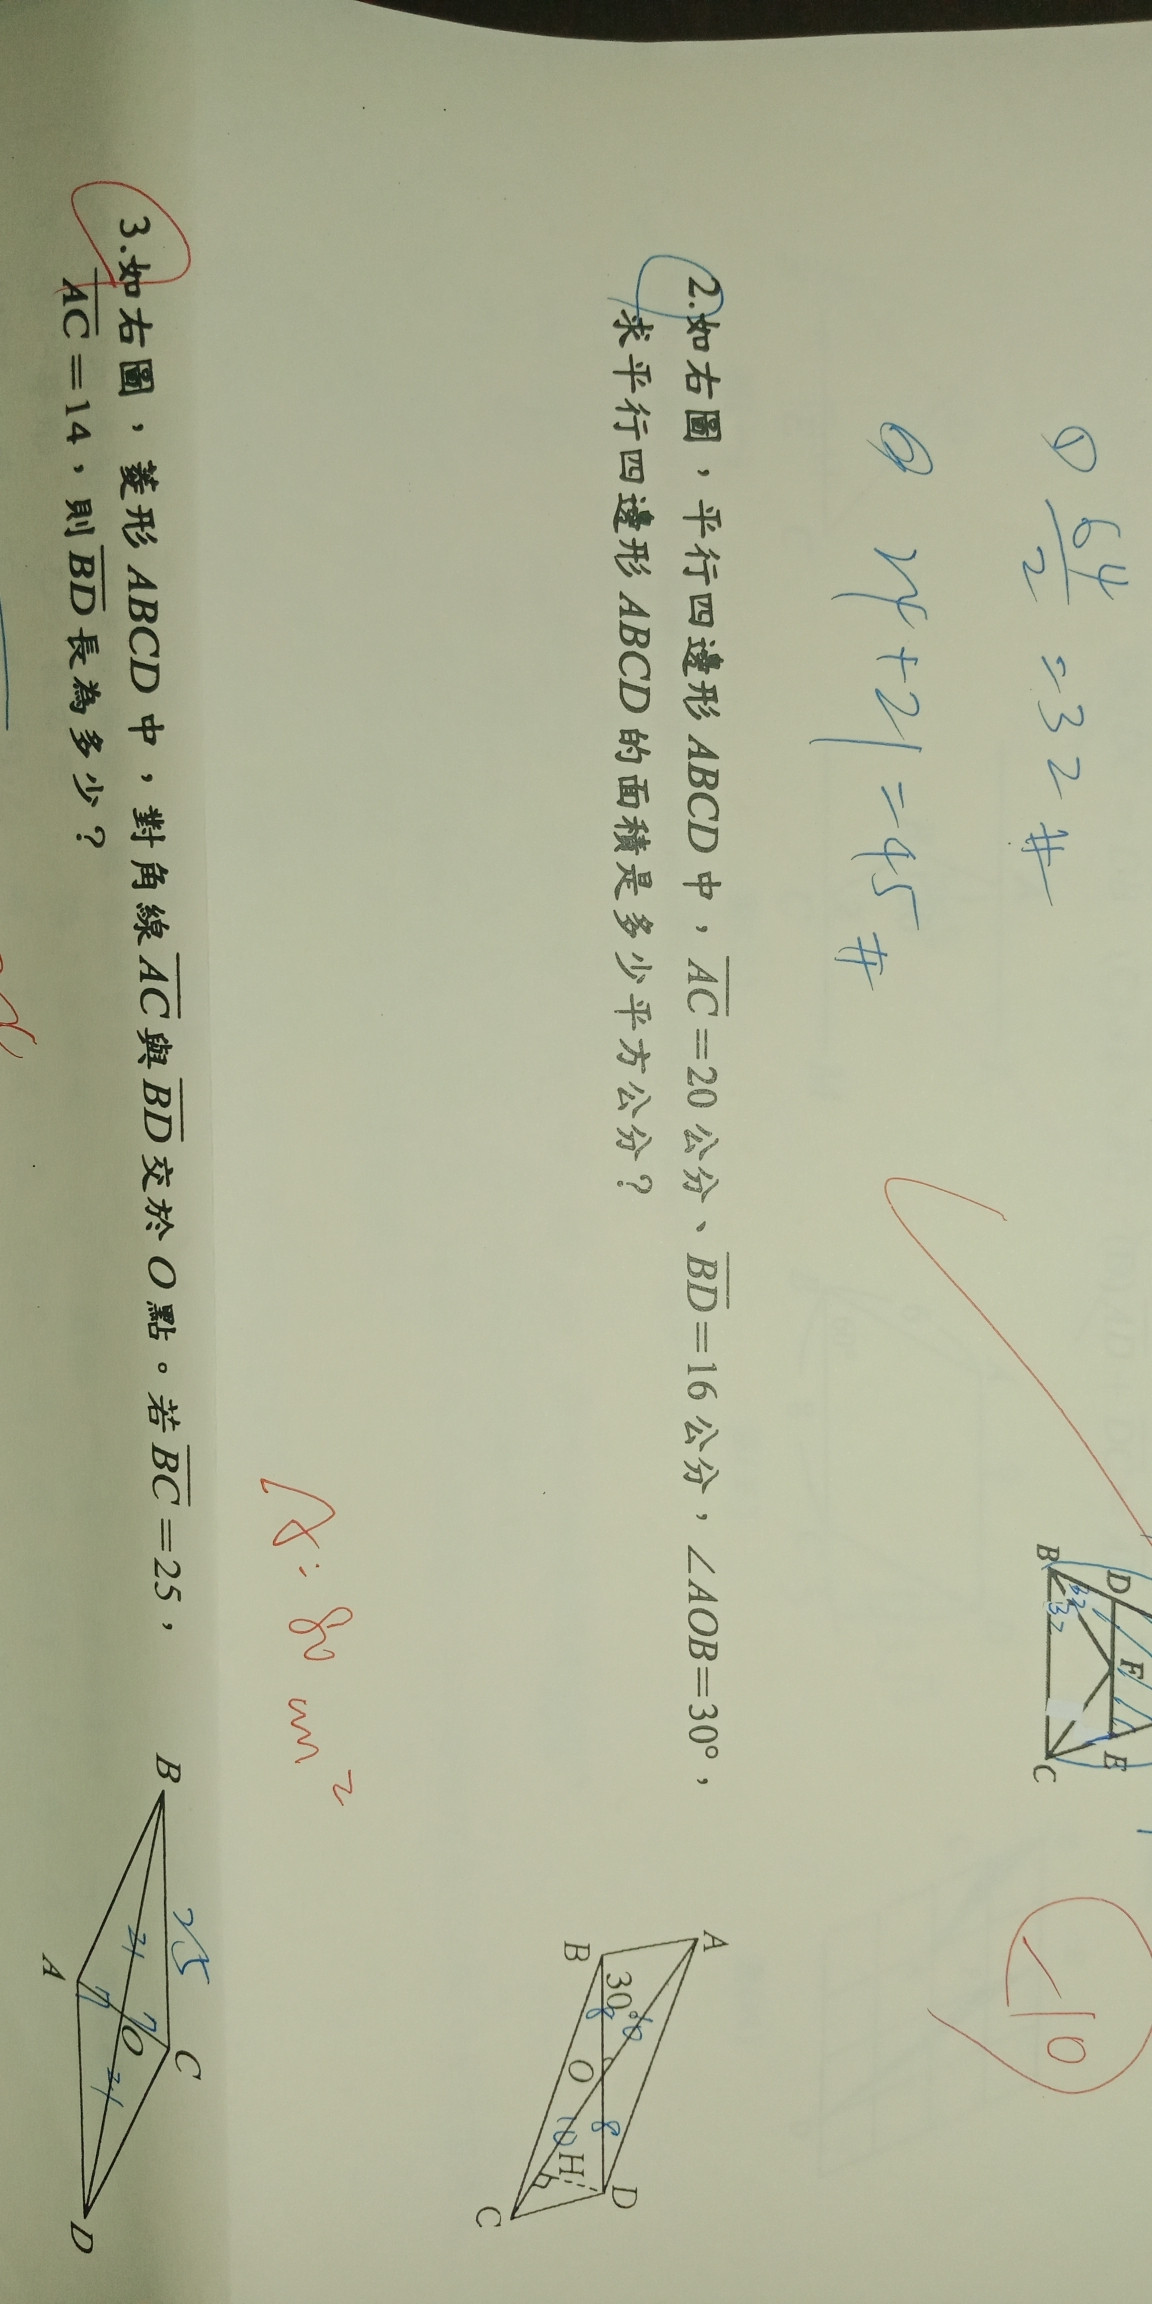 ① 64/2 = 32 #
② 24 + 21 = 45 #
D F E
B 32 32 C
-10
2.如右圖，平行四邊形 ABCD 中，AC=20 公分、BD=16 公分，∠AOB=30°，
求平行四邊形 ABCD 的面積是多少平方公分？
A
B 30° 8 10 O 8 D
10 H
C
A: 80 cm²
3.如右圖，菱形 ABCD 中，對角線 AC 與 BD 交於 O 點。若 BC=25，
AC=14，則 BD 長為多少？
B 25 C
24 7 O
A 7 24 D